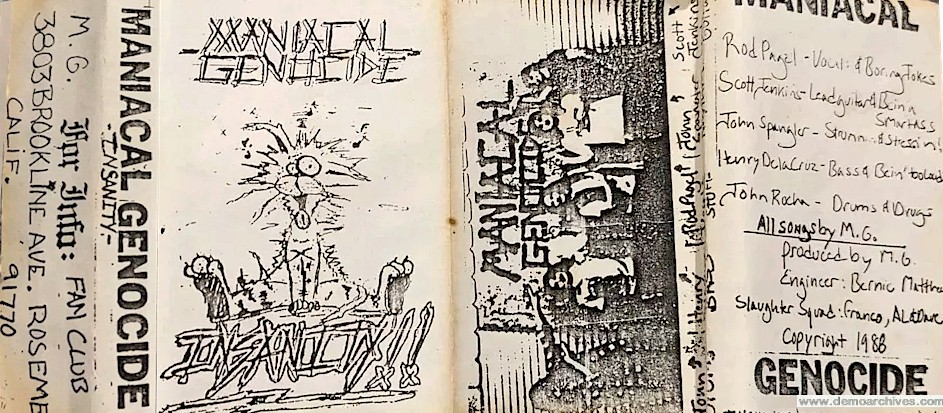 M.G.
For Info: FAN CLUB
3803 BROOKLINE AVE. ROSEME
CALIF. 91770
MANIACAL GENOCIDE
-INSANITY-
MANIACAL
GENOCIDE
INSANITY!!
MANIACAL
GENOCIDE
Scott Jenkins
MANIACAL
Rod Pagel - Vocals & Boring Jokes
Scott Jenkins - Lead guitar & Bein a
Smartass
John Spangler - Strumm & Stressin!
Henry DelaCruz - Bass & Bein' too Loud
John Rocha - Drums & Drugs
All songs by M.G.
Produced by M.G.
Engineer: Bernie Matthe
Slaughter Squad: Franco, AL & Dave
Copyright 1988
GENOCIDE
www.demoarchives.com